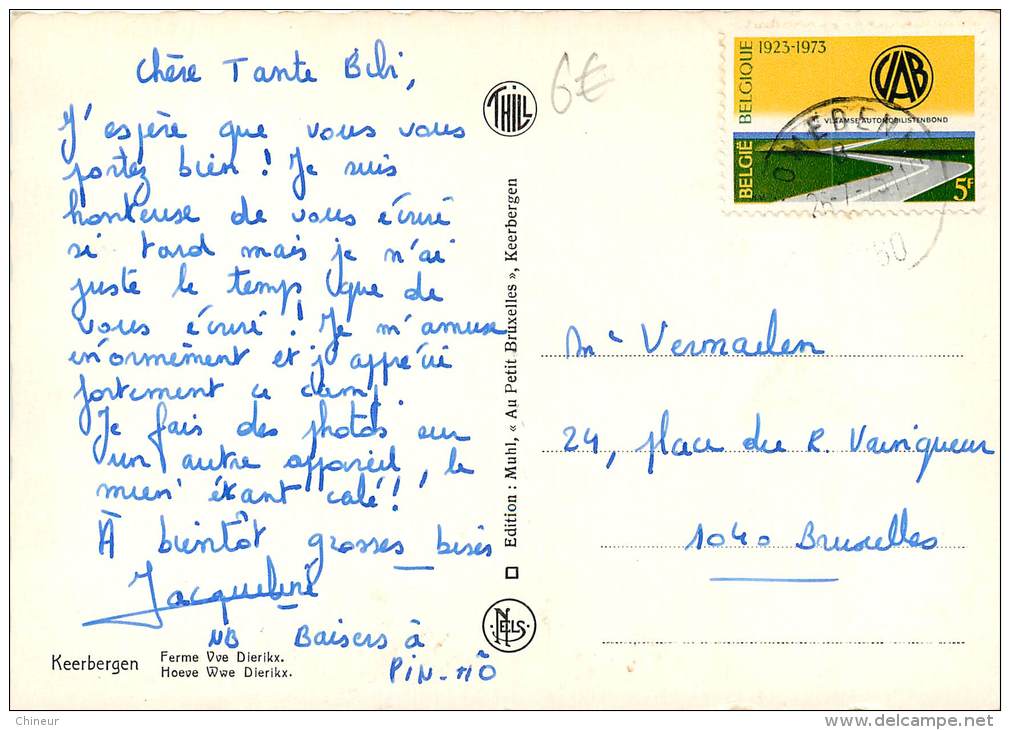 Chère Tante Bibi,
J'espère que vous vous
portez bien ! Je suis
honteuse de vous écrire
si tard mais je n'ai
juste le temps que de
vous écrire ! Je m'amuse
énormément et j'apprécie
fortement ce camp.
Je fais des photos sur
un autre appareil, le
mien étant calé !
À bientôt grosses bises
Jacqueline
NB Baisers à
Keerbergen
Ferme Vve Dierikx.
Hoeve Wwe Dierikx.
THILL
Edition : Muhl, « Au Petit Bruxelles », Keerbergen
NELS
6€
BELGIË BELGIQUE
1923-1973
VAB
VLAAMSE AUTOMOBILISTENBOND
5F
Vermaelen
24, place du R. Vainqueur
1040 Bruxelles
Chineur
delcampe.net